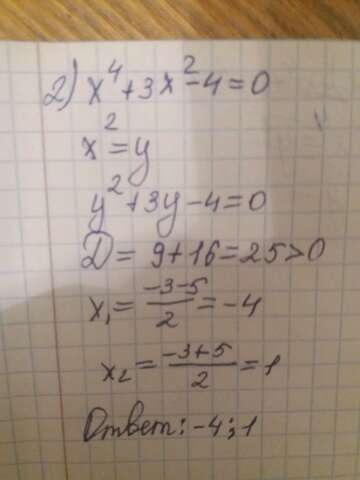 2) x⁴+3x²-4=0
x²=y
y²+3y-4=0
D=9+16=25>0
x₁=(-3-5)/2=-4
x₂=(-3+5)/2=1
Ответ:-4;1